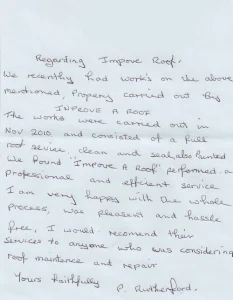 Regarding Improve Roof.
We recently had work's on the above
mentioned, Property carried out By
INPROVE A ROOF
The works were carried out in
Nov 2010, and consisted of a full
roof service, clean and seal, also painted
We found "Improve A Roof" performed a
Professional and efficient service
I am very happy with the whole
process, was pleasant and hassle
free, I would recomend their
services to anyone who was considering
roof maintance and repair
Yours faithfully
P. Rutherford.